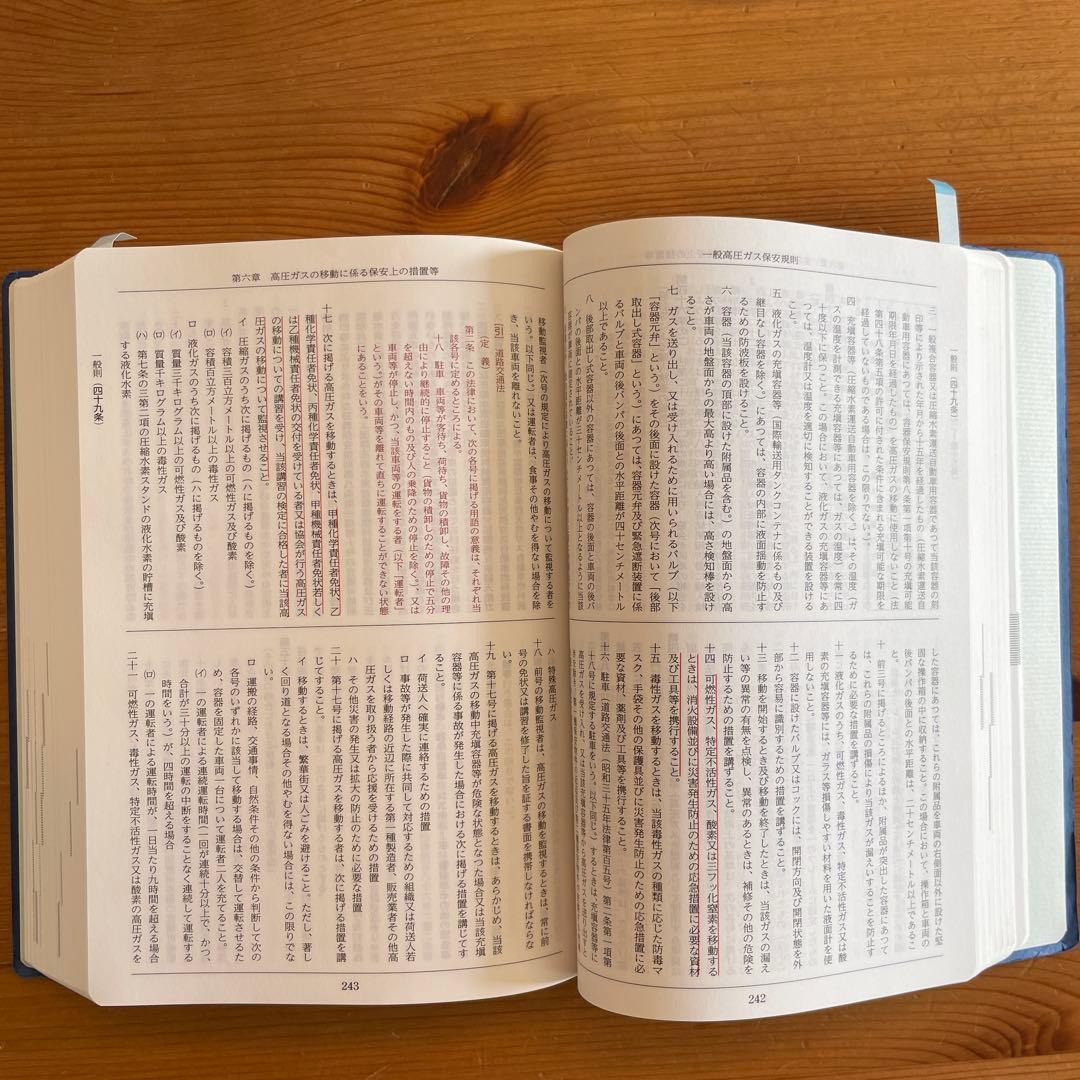 一般高圧ガス保安規則
一般則（四十九条）
三　一般複合容器又は圧縮水素運送自動車用容器であつて当該容器の刻
印等により示された年月から十五年を経過したもの（圧縮水素運送自
動車用容器にあつては、容器保安規則第八条第一項第十号の充填可能
期限年月日を経過したもの）を高圧ガスの移動に使用しないこと（法
第四十八条第五項の許可に付された条件に含まれる充填可能な期限を
経過していないものである場合は、この限りでない）。
四　充填容器等（圧縮水素運送自動車用容器を除く。）は、その温度（ガ
スの温度を計測できる充填容器等にあつては、ガスの温度）を常に四
十度以下に保つこと。この場合において、液化ガスの充填容器等にあ
つては、温度計又は温度を適切に検知することができる装置を設ける
こと。
五　液化ガスの充填容器等（国際輸送用タンクコンテナに係るもの及び
継目なし容器を除く。）にあつては、容器の内部に液面揺動を防止す
るための防波板を設けること。
六　容器（当該容器の頂部に設けた附属品を含む。）の地盤面からの高
さが車両の地盤面からの最大高より高い場合には、高さ検知棒を設け
ること。
七　ガスを送り出し、又は受け入れるために用いられるバルブ（以下
「容器元弁」という。）をその後面に設けた容器（次号において「後部
取出し式容器」という。）にあつては、容器元弁及び緊急遮断装置に係
るバルブと車両の後バンパの後面との水平距離が四十センチメートル
以上であること。
八　後部取出し式容器以外の容器にあつては、容器の後面と車両の後バ
ンパの後面との水平距離が三十センチメートル以上となるように当該
した容器にあつては、これらの附属品を車両の右側面以外に設けた堅
固な操作箱の中に収納すること。この場合において、操作箱と車両の
後バンパの後面との水平距離は、二十センチメートル以上であるこ
十　前三号に掲げるところによるほか、附属品が突出した容器にあつて
は、これらの附属品の損傷により当該ガスが漏えいすることを防止す
るために必要な措置を講ずること。
十一　液化ガスのうち、可燃性ガス、毒性ガス、特定不活性ガス又は酸
素の充填容器等には、ガラス等損傷しやすい材料を用いた液面計を使
用しないこと。
十二　容器に設けたバルブ又はコックには、開閉方向及び開閉状態を外
部から容易に識別するための措置を講ずること。
十三　移動を開始するとき及び移動を終了したときは、当該ガスの漏え
い等の異常の有無を点検し、異常のあるときは、補修その他の危険を
防止するための措置を講ずること。
十四　可燃性ガス、特定不活性ガス、酸素又は三フッ化窒素を移動する
ときは、消火設備並びに災害発生防止のための応急措置に必要な資材
及び工具等を携行すること。
十五　毒性ガスを移動するときは、当該毒性ガスの種類に応じた防毒マ
スク、手袋その他の保護具並びに災害発生防止のための応急措置に必
要な資材、薬剤及び工具等を携行すること。
十六　駐車（道路交通法（昭和三十五年法律第百五号）第二条第一項第
十八号に規定する駐車をいう。以下同じ。）するときは、充填容器等に
242
第六章　高圧ガスの移動に係る保安上の措置等
移動監視者（次号の規定により高圧ガスの移動について監視する者を
いう。以下同じ。）又は運転者は、食事その他やむを得ない場合を除
き、当該車両を離れないこと。
【引】道路交通法
（定義）
第二条　この法律において、次の各号に掲げる用語の意義は、それぞれ当
該各号に定めるところによる。
十八　駐車　車両等が客待ち、荷待ち、貨物の積卸し、故障その他の理
由により継続的に停止すること（貨物の積卸しのための停止で五分
を超えない時間内のもの及び人の乗降のための停止を除く。）、又は
車両等が停止し、かつ、当該車両等の運転をする者（以下「運転者」
という。）がその車両等を離れて直ちに運転することができない状態
にあることをいう。
十七　次に掲げる高圧ガスを移動するときは、甲種化学責任者免状、乙
種化学責任者免状、丙種化学責任者免状、甲種機械責任者免状若しく
は乙種機械責任者免状の交付を受けている者又は協会が行う高圧ガス
の移動についての講習を受け、当該講習の検定に合格した者に当該高
圧ガスの移動について監視させること。
イ　圧縮ガスのうち次に掲げるもの（ハに掲げるものを除く。）
(イ)　容積三百立方メートル以上の可燃性ガス及び酸素
(ロ)　容積百立方メートル以上の毒性ガス
ロ　液化ガスのうち次に掲げるもの（ハに掲げるものを除く。）
(イ)　質量三千キログラム以上の可燃性ガス及び酸素
(ロ)　質量千キログラム以上の毒性ガス
(ハ)　第七条の三第二項の圧縮水素スタンドの液化水素の貯槽に充填
する液化水素
一般則（四十九条）
ハ　特殊高圧ガス
十八　前号の移動監視者は、高圧ガスの移動を監視するときは、常に前
号の免状又は講習を修了した旨を証する書面を携帯しなければならな
い。
十九　第十七号に掲げる高圧ガスを移動するときは、あらかじめ、当該
高圧ガスの移動中充填容器等が危険な状態となつた場合又は当該充填
容器等に係る事故が発生した場合における次に掲げる措置を講じてす
ること。
イ　荷送人へ確実に連絡するための措置
ロ　事故等が発生した際に共同して対応するための組織又は荷送人若
しくは移動経路の近辺に所在する第一種製造者、販売業者その他高
圧ガスを取り扱う者から応援を受けるための措置
ハ　その他災害の発生又は拡大の防止のために必要な措置
二十　第十七号に掲げる高圧ガスを移動する者は、次に掲げる措置を講
じてすること。
イ　移動するときは、繁華街又は人ごみを避けること。ただし、著し
く回り道となる場合その他やむを得ない場合には、この限りでな
い。
ロ　運搬の経路、交通事情、自然条件その他の条件から判断して次の
各号のいずれかに該当して移動する場合は、交替して運転させるた
め、容器を固定した車両一台について運転者二人を充てること。
(イ)　一の運転者による連続運転時間（一回が連続十分以上で、かつ、
合計が三十分以上の運転の中断をすることなく連続して運転する
時間をいう。）が、四時間を超える場合
(ロ)　一の運転者による運転時間が、一日当たり九時間を超える場合
二十一　可燃性ガス、毒性ガス、特定不活性ガス又は酸素の高圧ガスを
243